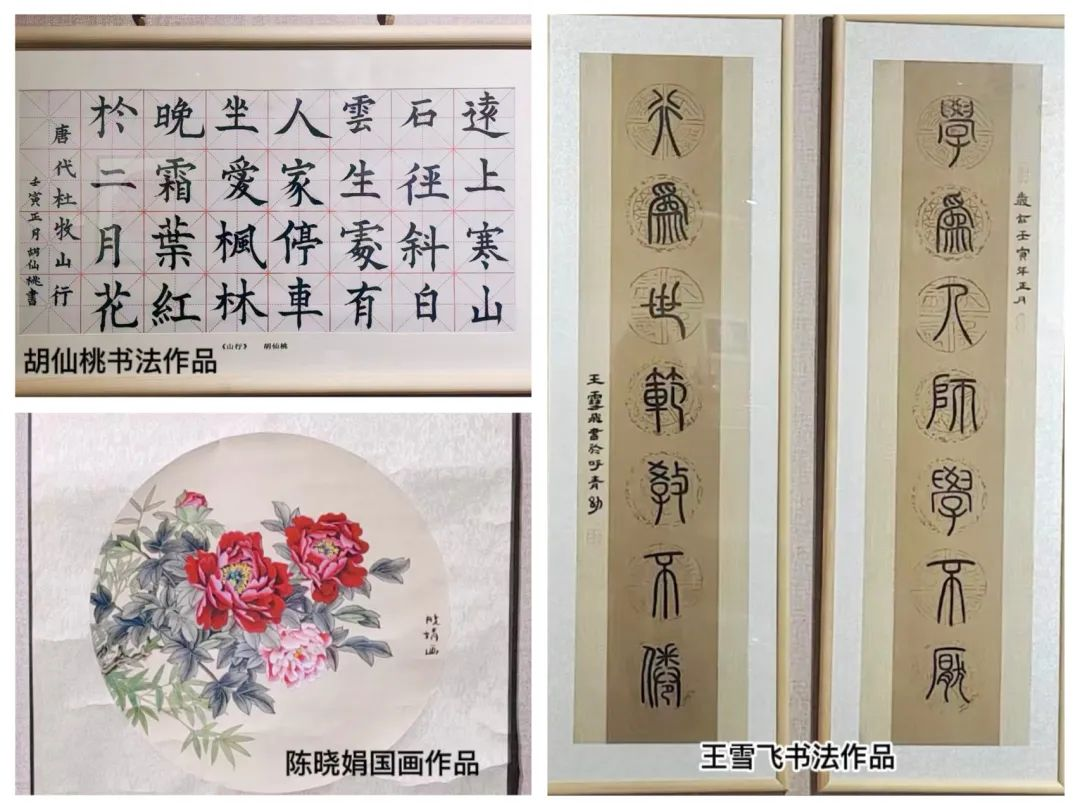 遠上寒山
石徑斜白
雲生處有
人家停車
坐愛楓林
晚霜葉紅
於二月花
唐代杜牧山行
壬寅正月胡仙桃書
《山行》 胡仙桃
胡仙桃书法作品
晓娟画
陈晓娟国画作品
歲壬寅年正月
學爲人師學不厭
行爲世範教不倦
王雪飛書於呼青幼
王雪飞书法作品